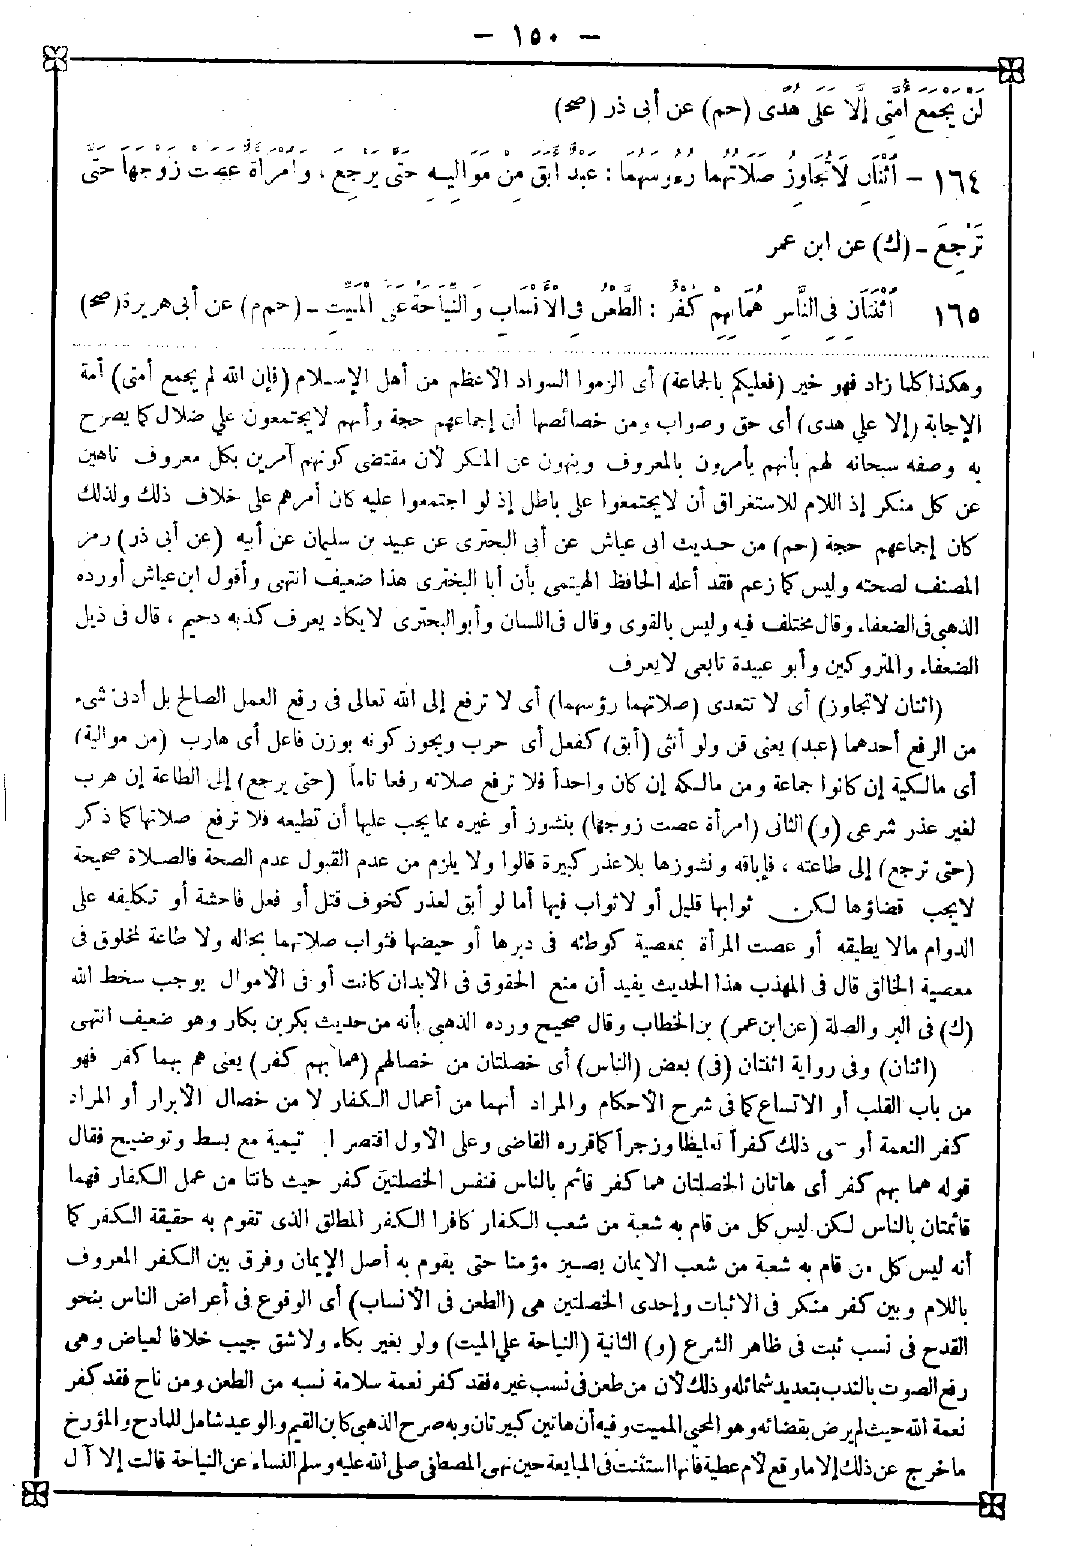 – ١٥٠ –
لَنْ يَجْمَعَ أُمَّتِى إِلَّا عَلَى هُدًى (حم) عن أبى ذر (صح)
١٦٤ – اثْنَانِ لَا تُجَاوِزُ صَلَاتُهُمَا رُءُوسَهُمَا : عَبْدٌ أَبَقَ مِنْ مَوَالِيهِ حَتَّى يَرْجِعَ ، وَامْرَأَةٌ عَصَتْ زَوْجَهَا حَتَّى
تَرْجِعَ – (ك) عن ابن عمر
١٦٥ اثْنَتَانِ فِى النَّاسِ هُمَا بِهِمْ كُفْرٌ : الطَّعْنُ فِى الْأَنْسَابِ وَالنِّيَاحَةُ عَلَى الْمَيِّتِ – (حم م) عن أبى هريرة (صح)
وهكذا كلما زاد فهو خير (فعليكم بالجماعة) أى الزموا السواد الأعظم من أهل الإسلام (فإن الله لم يجمع أمتى) أمة
الإجابة (إلا على هدى) أى حق وصواب ومن خصائصها أن إجماعهم حجة وأنهم لا يجتمعون على ضلال كما يصرح
به وصفه سبحانه لهم بأنهم يأمرون بالمعروف وينهون عن المنكر لأن مقتضى كونهم آمرين بكل معروف ناهين
عن كل منكر إذ اللام للاستغراق أن لا يجتمعوا على باطل إذ لو اجتمعوا عليه كان أمرهم على خلاف ذلك ولذلك
كان إجماعهم حجة (حم) من حديث ابى عياش عن أبى البحترى عن عبيد بن سليمان عن أبيه (عن أبى ذر) رمز
المصنف لصحته وليس كما زعم فقد أعله الحافظ الهيتمى بأن أبا البخترى هذا ضعيف انتهى وأقول ابن عياش أورده
الذهبى فى الضعفاء وقال مختلف فيه وليس بالقوى وقال فى اللسان وأبو البحترى لا يكاد يعرف كذبه دحيم ، قال فى ذيل
الضعفاء والمتروكين وأبو عبيدة تابعى لا يعرف
(اثنان لا تجاوز) أى لا تتعدى (صلاتهما رؤسهما) أى لا ترفع إلى الله تعالى فى رفع العمل الصالح بل أدنى شىء
من الرفع أحدهما (عبد) يعنى قن ولو أنثى (أبق) كفعل أى حرب ويجوز كونه بوزن فاعل أى هارب (من موالية)
أى مالكية إن كانوا جماعة ومن مالكه إن كان واحدأ فلا ترفع صلاته رفعا تاماً (حتى يرجع) إلى الطاعة إن هرب
لغير عذر شرعى (و) الثانى (امرأة عصت زوجها) بنشوز أو غيره مما يجب عليها أن تطيعه فلا ترفع صلاتها كما ذكر
(حتى ترجع) إلى طاعته ، فإباقه ونشوزها بلا عذر كبيرة قالوا ولا يلزم من عدم القبول عدم الصحة فالصلاة صحيحة
لايجب قضاؤها لكن ثوابها قليل أو لاثواب فيها أما لو أبق لعذر كخوف قتل أو فعل فاحشة أو تكليفه على
الدوام مالا يطيقه أو عصت المرأة بمعصية كوطئه فى دبرها أو حيضها فثواب صلاتهما بحاله ولا طاعة لمخلوق فى
معصية الخالق قال فى المهذب هذا الحديث يفيد أن منع الحقوق فى الأبدان كانت أو فى الأموال يوجب سخط الله
(ك) فى البر والصلة (عن ابن عمر) بن الخطاب وقال صحيح ورده الذهبى بأنه من حديث بكر بن بكار وهو ضعيف انتهى
(اثنان) وفى رواية اثنتان (فى) بعض (الناس) أى خصلتان من خصالهم (هما بهم كفر) يعنى هم بهما كفر فهو
من باب القلب أو الاتساع كما فى شرح الأحكام والمراد أنهما من أعمال الكفار لا من خصال الأبرار أو المراد
كفر النعمة أو ذلك كفراً تغليظا وزجراً كما قرره القاضى وعلى الأول اقتصر تيمية مع بسط وتوضيح فقال
قوله هما بهم كفر أى هاتان الخصلتان هما كفر قائم بالناس فنفس الخصلتين كفر حيث كانتا من عمل الكفار فهما
قائمتان بالناس لكن ليس كل من قام به شعبة من شعب الكفار كافرا الكفر المطلق الذى تقوم به حقيقة الكفر كما
أنه ليس كل من قام به شعبة من شعب الايمان يصير مؤمنا حتى يقوم به أصل الإيمان وفرق بين الكفر المعروف
باللام وبين كفر منكر فى الاثبات وإحدى الخصلتين هى (الطعن فى الأنساب) أى الوقوع فى أعراض الناس بنحو
القدح فى نسب ثبت فى ظاهر الشرع (و) الثانية (النياحة على الميت) ولو بغير بكاء ولا شق جيب خلافا لعياض وهى
رفع الصوت بالندب بتعديد شمائله وذلك لأن من طعن فى نسب غيره فقد كفر نعمة سلامة نسبه من الطعن ومن ناح فقد كفر
نعمة الله حيث لم يرض بقضائه وهو المحيى المميت وفيه أن هاتين كبيرتان وبه صرح الذهبى كابن القيم والوعيد شامل للمادح والمؤرخ
ما خرج عن ذلك إلا ما وقع لأم عطية فانها استثنت فى المبايعة حين نهى المصطفى صلى الله عليه وسلم النساء عن النياحة قالت إلا آل